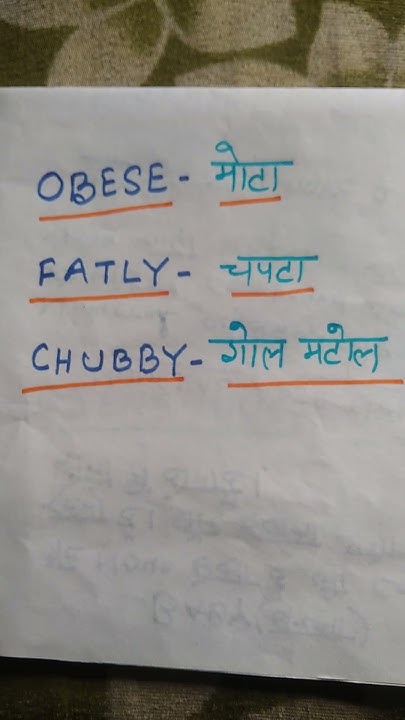 OBESE - मोटा
FATLY - चपटा
CHUBBY - गोल मटोल